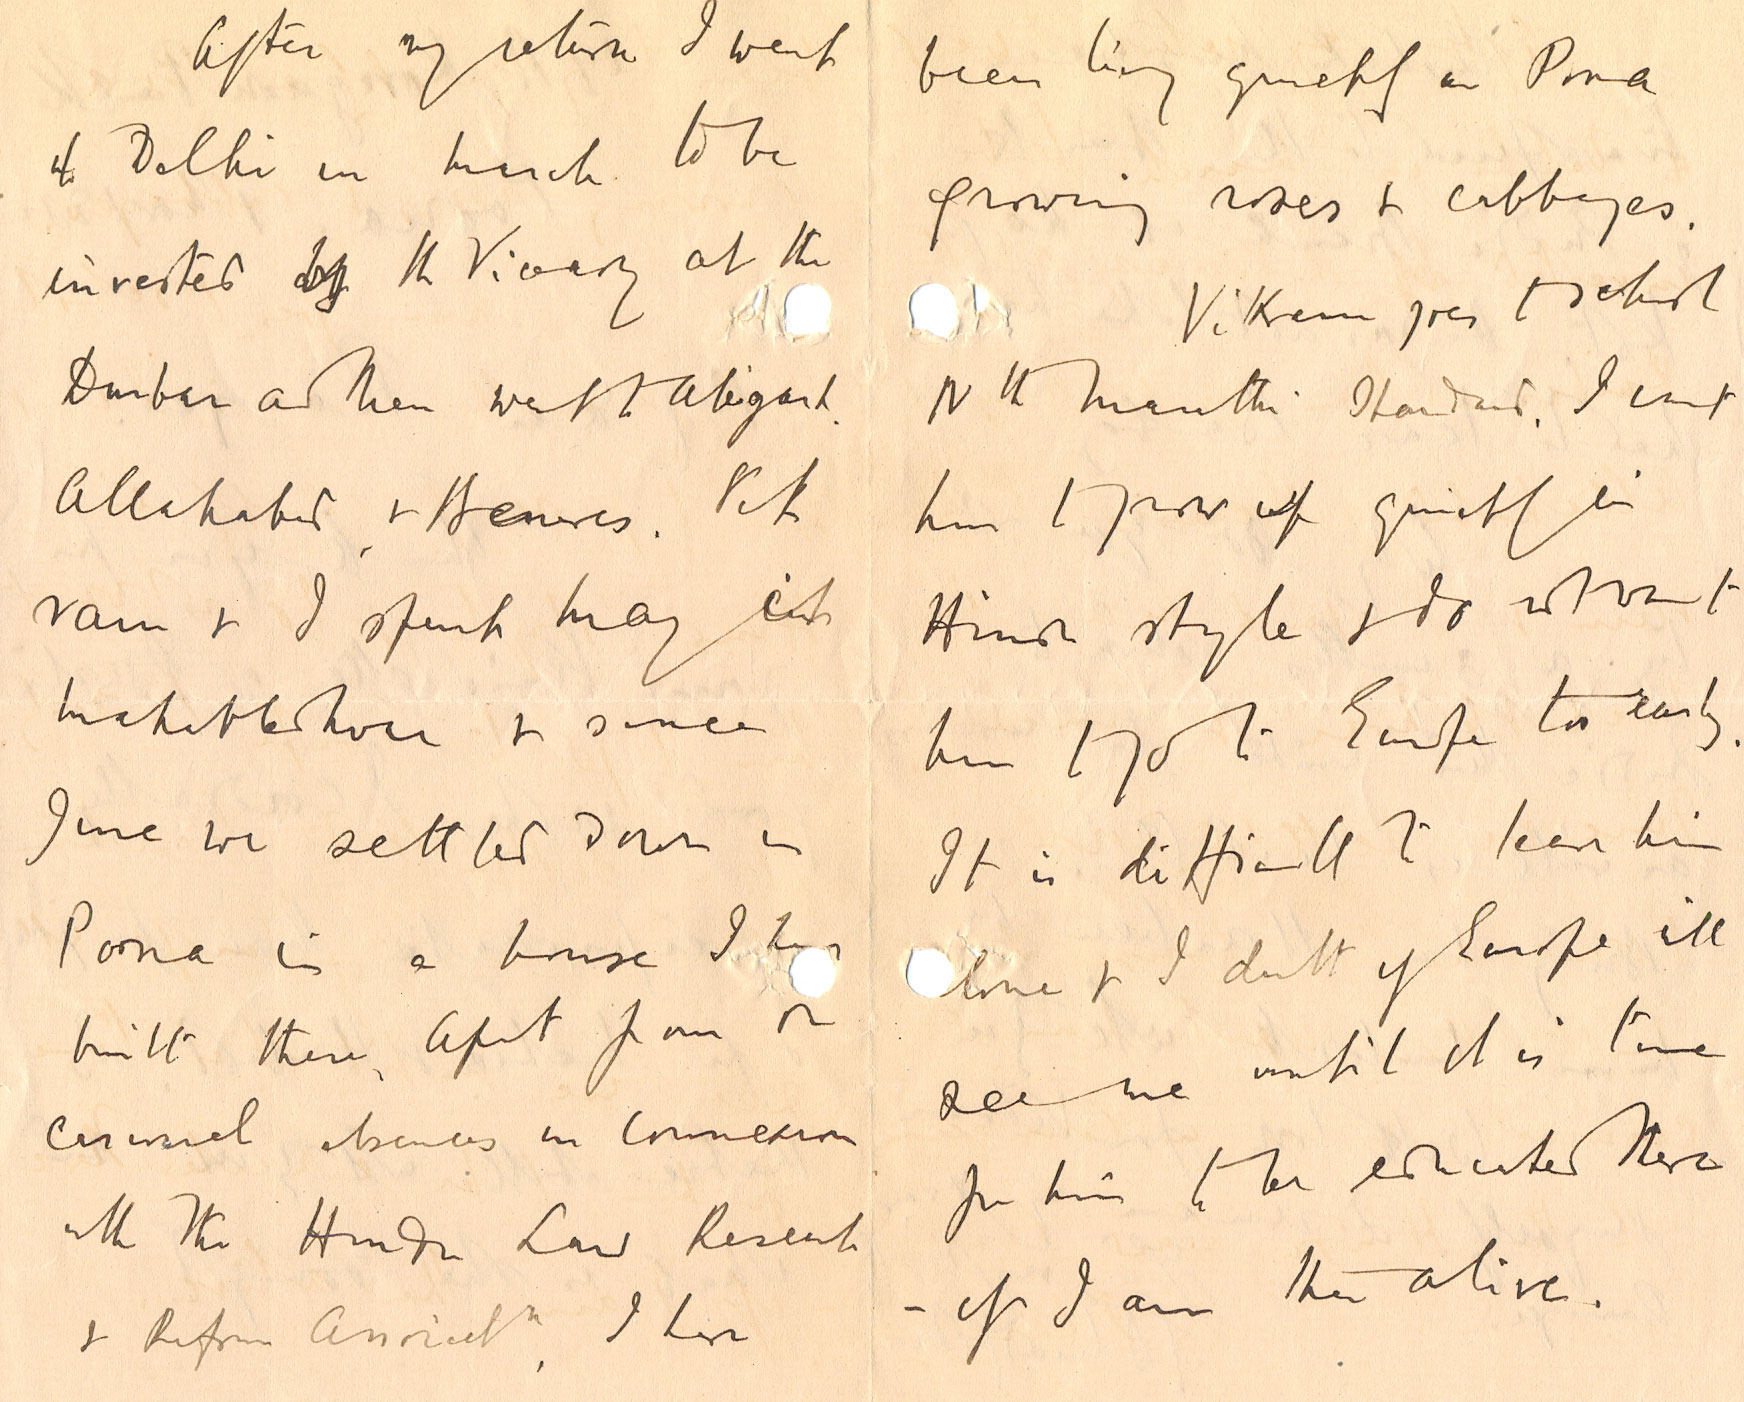 After my return I went
to Delhi in March to be
invested by the Viceroy at the
Durbar and then went to Aligarh,
Allahabad, & Benares. Vik
ram & I spent May in
Mahableshwar & since
June we settled down in
Poona in a house I have
built there, Apart from
casual absences in connexion
with the Hindu Law Research
& Reform Associatn, I have
been living quietly in Poona
growing roses & cabbages.
Vikram goes to school
IVth Marathi Standard. I want
him to grow up quietly in
Hindu style & do not want
him to go to Europe too early.
It is difficult to leave him
alone & I doubt if Europe will
see me until it is time
for him to be educated there
- if I am then alive.